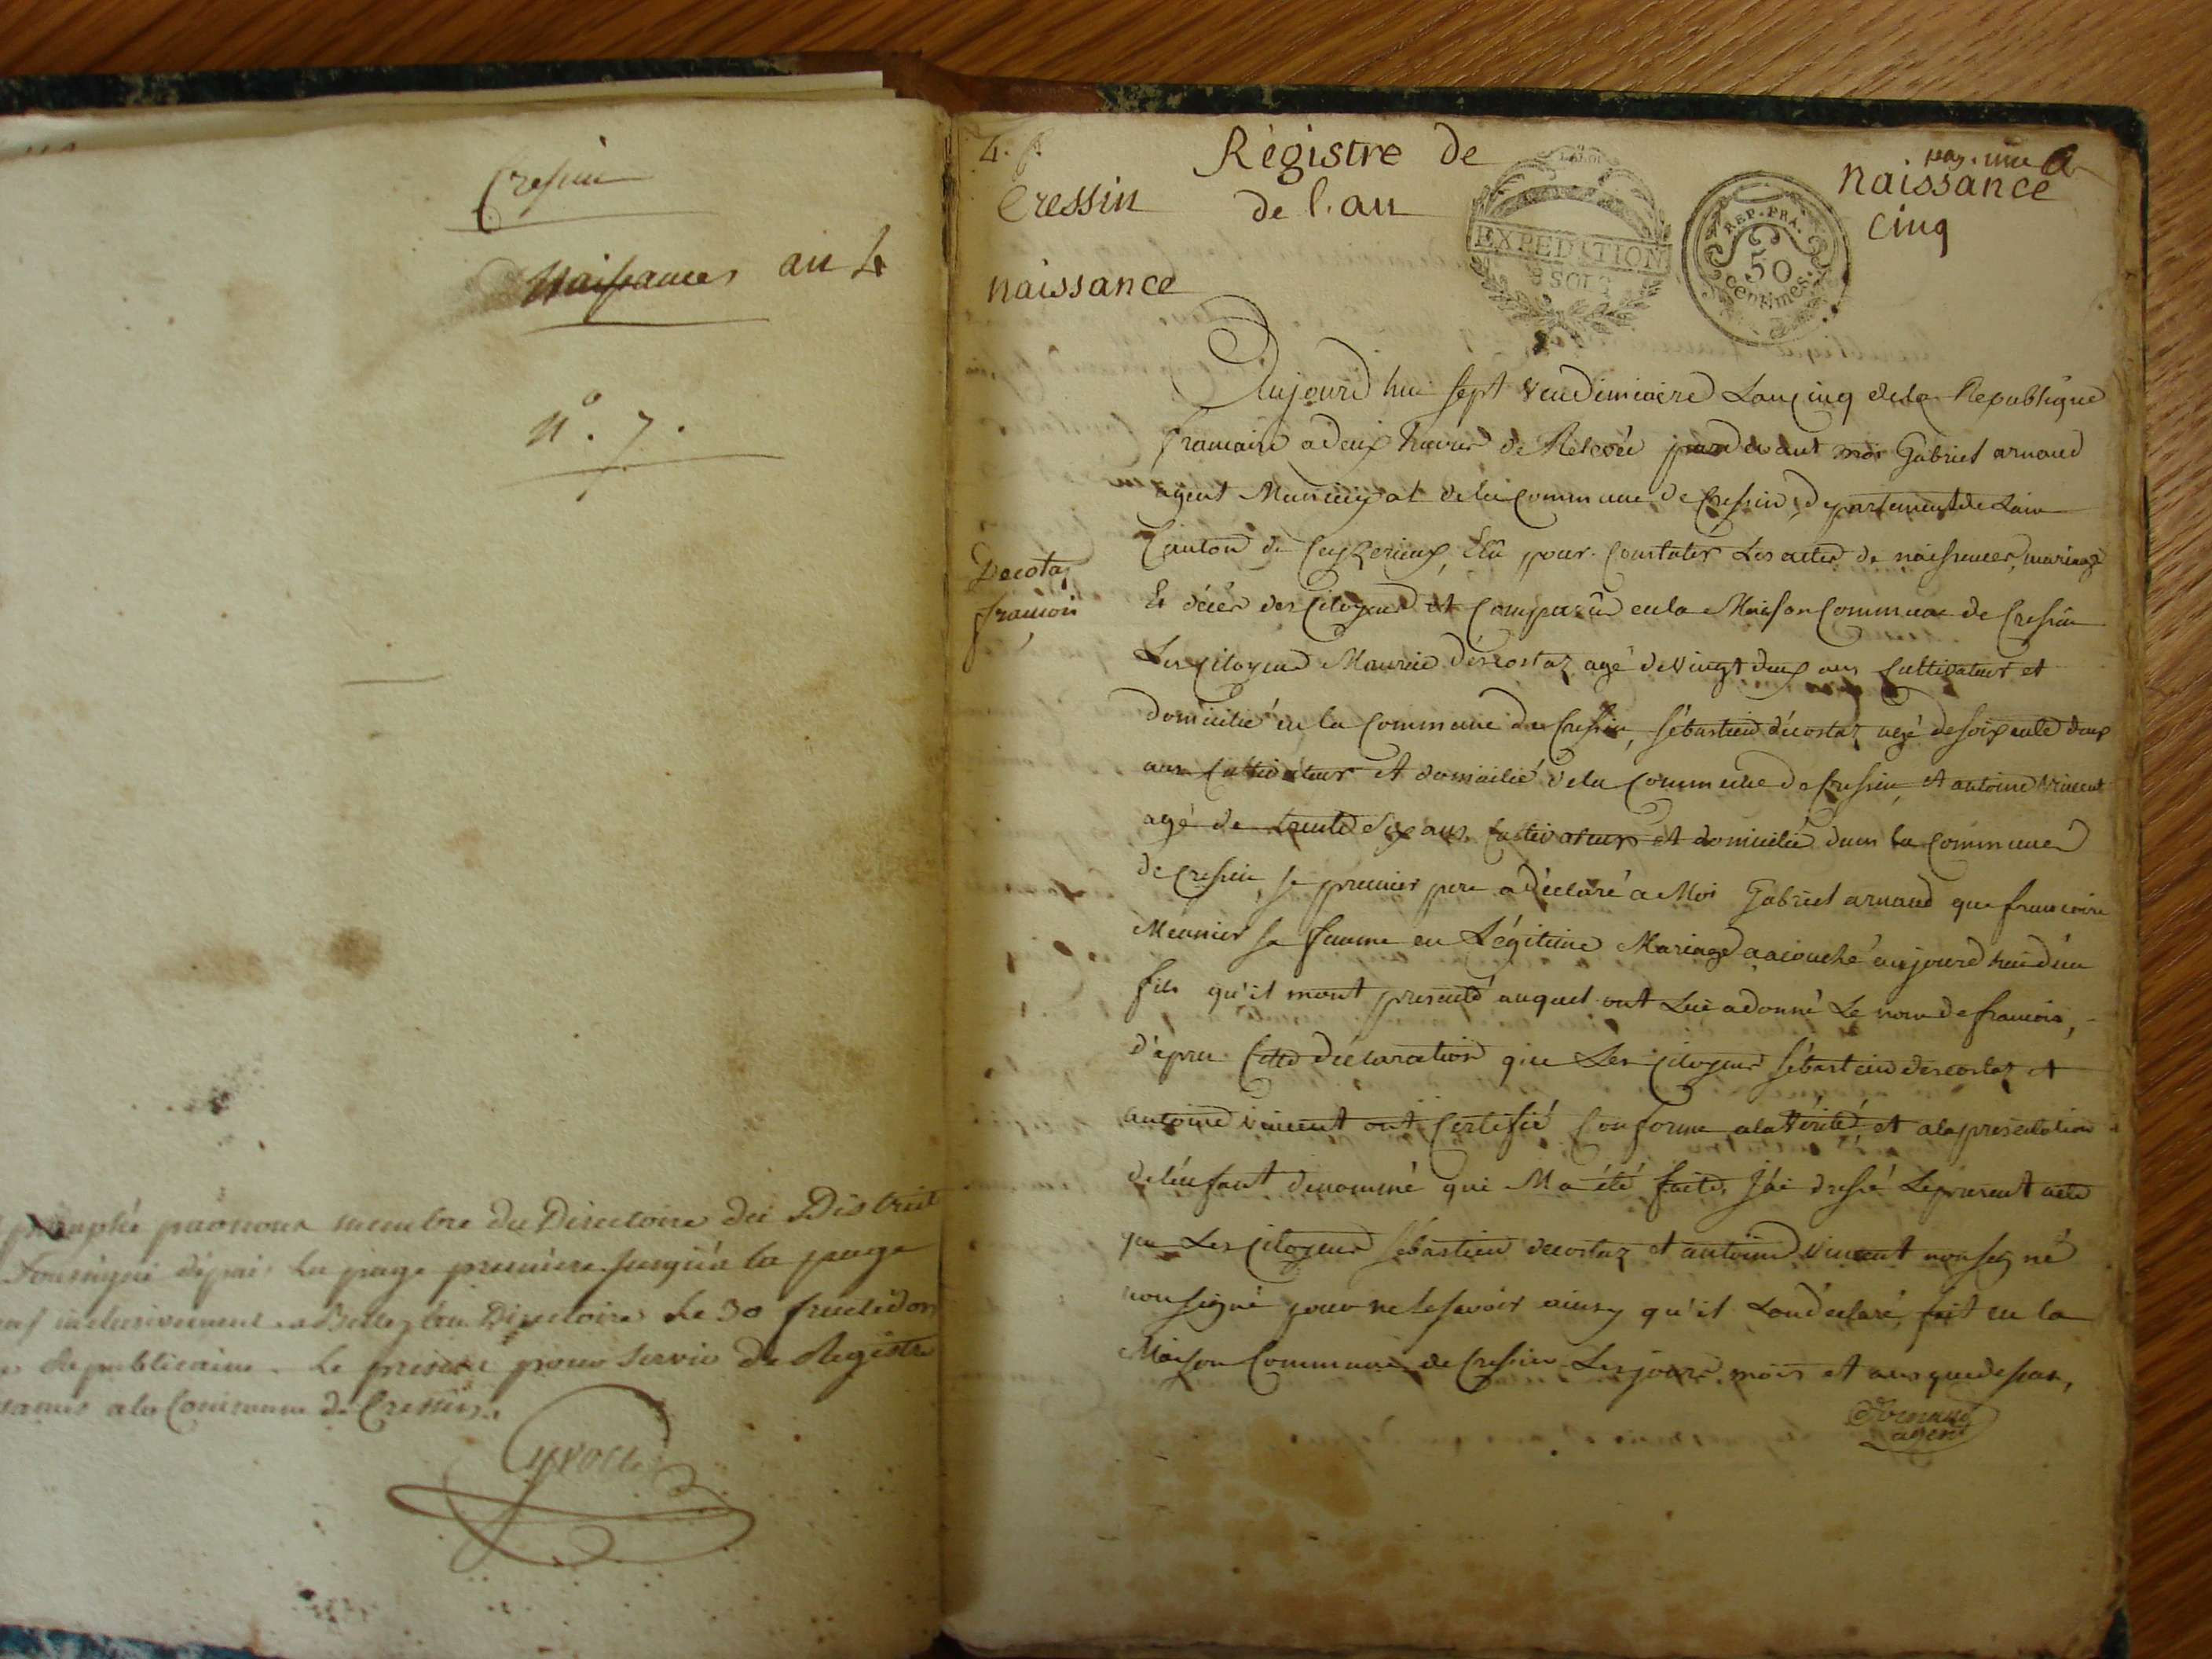 Cressin
Naissances an 4
n.° 7.
paraphé par nous membre du Directoire du District
soussigné dépuis la page première jusqu'à la page
inclusivement a Belley au Directoire le 30 fructidor
Republicaine le present pour servir de Registre
a la Commune de Cressin
4. f.
Régistre de naissance
Cressin de l'an Cinq
pag. une
EXPEDITION
SOLS
REP. FRA.
50
CENTIMES.
naissance
Aujourd'hui sept Vendimiaire Lan Cinq de la Republique
francaise a deux heures de Relevée par devant moi Gabriel arnaud
agent Municipal de la Commune de Cressin, departement de Lain
Canton de Ceyzerieux, Elu pour Constater Les actes de naissances, mariage
Decotaz
francois
Et décès des Citoyens et Comparu en la Maison Commune de Cressin
Les Citoyens Maurice déscostaz agé de vingt deux ans Cultivateur et
domicilié en la Commune de Cressin, sébastien décostaz agé de soixante deux
ans Cultivateur et domicilié de la Commune de Cressin, et antoine Vincent
agé de trente six ans Cultivateur et domicilié dans la Commune
de Cressin, le premier pere a déclaré a Moi Gabriel arnaud que francoise
Meunier sa famme en Légitime Mariage a acouché aujourd'hui d'un
fils qu'il mont presenté auquel ont Lui a donné Le nom de francois,
d'apres Cette déclaration que Les Citoyens sébastien descostaz et
antoine Vincent ont Certifié Conforme a la Vérité, et a la presentation
de l'enfant denommé qui M'a été faite, J'ai dressé Le present acte
que Les Citoyens sébastien decostaz et antoine Vincent non signé
non signé pour ne le savoir ainsy qu'il Lon déclaré, fait en la
Maison Commune de Cressin Les jours mois et ans que dessus,
Arnaud
agent